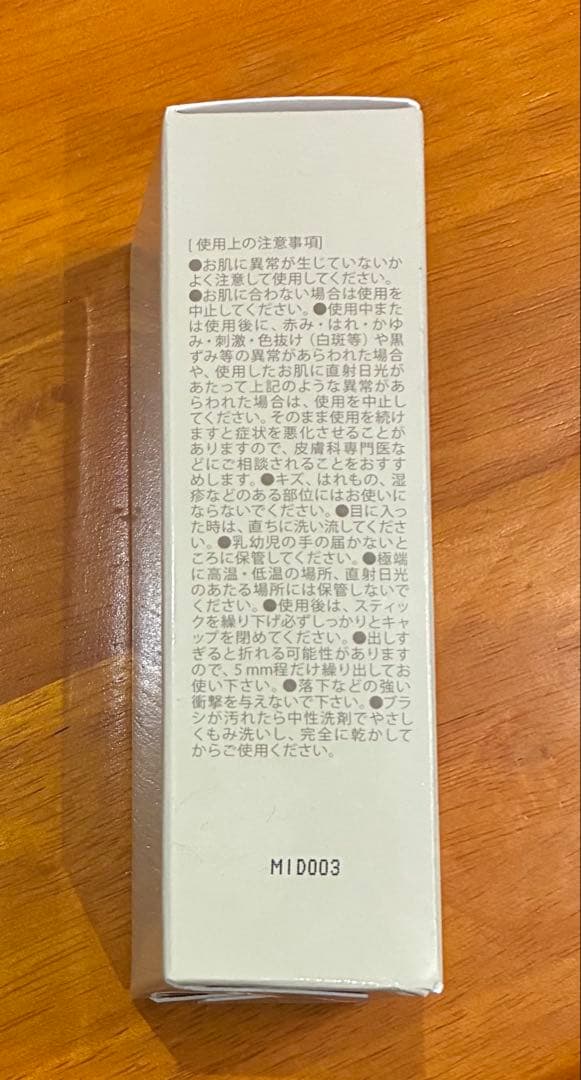 [使用上の注意事項]
●お肌に異常が生じていないか
よく注意して使用してください。
●お肌に合わない場合は使用を
中止してください。●使用中また
は使用後に、赤み・はれ・かゆ
み・刺激・色抜け(白斑等)や黒
ずみ等の異常があらわれた場合
や、使用したお肌に直射日光が
あたって上記のような異常があ
らわれた場合は、使用を中止し
てください。そのまま使用を続け
ますと症状を悪化させることが
ありますので、皮膚科専門医な
どにご相談されることをおすす
めします。●キズ、はれもの、湿
疹などのある部位にはお使いに
ならないでください。●目に入っ
た時は、直ちに洗い流してくださ
い。●乳幼児の手の届かないと
ころに保管してください。●極端
に高温・低温の場所、直射日光
のあたる場所には保管しないで
ください。●使用後は、スティッ
クを繰り下げ必ずしっかりとキャ
ップを閉めてください。●出しす
ぎると折れる可能性があります
ので、5mm程だけ繰り出してお
使い下さい。●落下などの強い
衝撃を与えないで下さい。●ブラ
シが汚れたら中性洗剤でやさし
くもみ洗いし、完全に乾かして
からご使用ください。
MID003